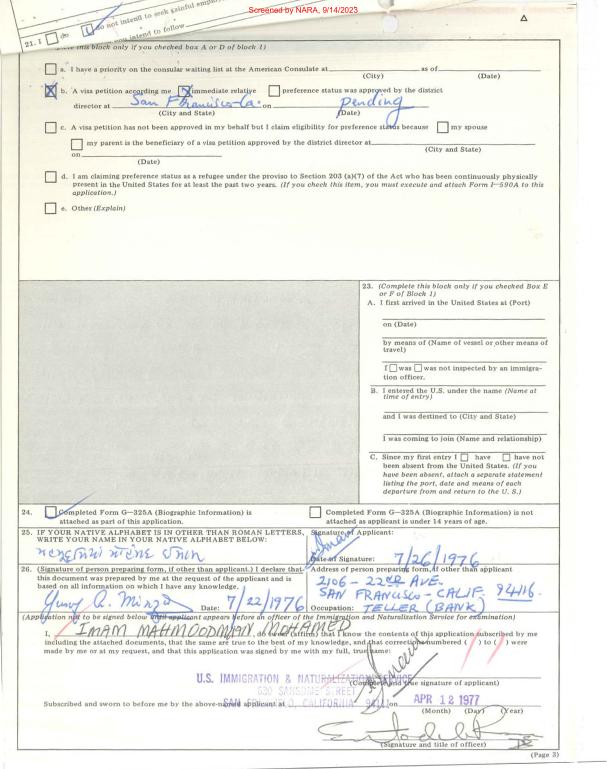 Screened by NARA, 9/14/2023
do not intend to seek gainful
21. I do
intend to follow
this block only if you checked box A or D of block 1)
a. I have a priority on the consular waiting list at the American Consulate at as of
(City) (Date)
b. A visa petition according me immediate relative preference status was approved by the district
director at San Francisco-Ca. on pending
(City and State) (Date)
c. A visa petition has not been approved in my behalf but I claim eligibility for preference status because my spouse
my parent is the beneficiary of a visa petition approved by the district director at
(City and State)
on
(Date)
d. I am claiming preference status as a refugee under the proviso to Section 203 (a)(7) of the Act who has been continuously physically
present in the United States for at least the past two years. (If you check this item, you must execute and attach Form I-590A to this
application.)
e. Other (Explain)
23. (Complete this block only if you checked Box E
or F of Block 1)
A. I first arrived in the United States at (Port)
on (Date)
by means of (Name of vessel or other means of
travel)
I was was not inspected by an immigra-
tion officer.
B. I entered the U.S. under the name (Name at
time of entry)
and I was destined to (City and State)
I was coming to join (Name and relationship)
C. Since my first entry I have have not
been absent from the United States. (If you
have been absent, attach a separate statement
listing the port, date and means of each
departure from and return to the U.S.)
24. Completed Form G-325A (Biographic Information) is
attached as part of this application.
Completed Form G-325A (Biographic Information) is not
attached as applicant is under 14 years of age.
25. IF YOUR NATIVE ALPHABET IS IN OTHER THAN ROMAN LETTERS,
WRITE YOUR NAME IN YOUR NATIVE ALPHABET BELOW:
Signature of Applicant:
Date of Signature: 7/26/1976
26. (Signature of person preparing form, if other than applicant.) I declare that
this document was prepared by me at the request of the applicant and is
based on all information on which I have any knowledge.
Date: 7/22/1976
Address of person preparing form, if other than applicant
2106 - 22ND AVE.
SAN FRANCISCO - CALIF. 94116.
Occupation: TELLER (BANK)
(Application not to be signed below until applicant appears before an officer of the Immigration and Naturalization Service for examination)
I, IMAM MAHMOODMIAN MOHAMED, do swear (affirm) that I know the contents of this application subscribed by me
including the attached documents, that the same are true to the best of my knowledge, and that corrections numbered ( ) to ( ) were
made by me or at my request, and that this application was signed by me with my full, true name:
U.S. IMMIGRATION & NATURALIZATION SERVICE
(Complete and true signature of applicant)
630 SANSOME STREET
Subscribed and sworn to before me by the above-named applicant at SAN FRANCISCO, CALIFORNIA 94111 on APR 12 1977
(Month) (Day) (Year)
(Signature and title of officer)
(Page 3)